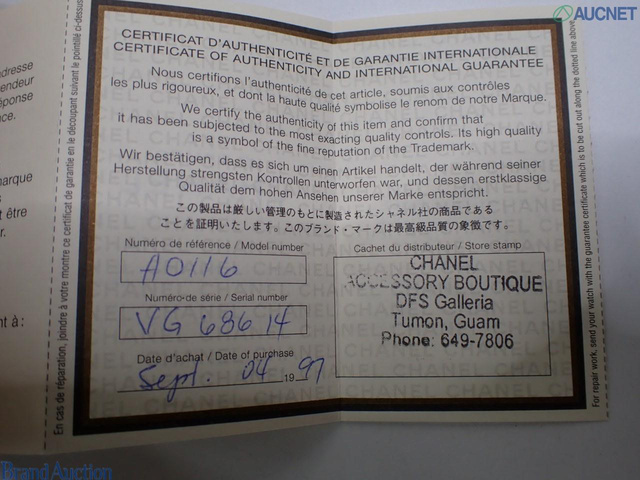 AUCNET
CERTIFICAT D'AUTHENTICITÉ ET DE GARANTIE INTERNATIONALE
CERTIFICATE OF AUTHENTICITY AND INTERNATIONAL GUARANTEE
Nous certifions l'authenticité de cet article, soumis aux contrôles
les plus rigoureux, et dont la haute qualité symbolise le renom de notre Marque.
We certify the authenticity of this item and confirm that
it has been subjected to the most exacting quality controls. Its high quality
is a symbol of the fine reputation of the Trademark.
Wir bestätigen, dass es sich um einen Artikel handelt, der während seiner
Herstellung strengsten Kontrollen unterworfen war, und dessen erstklassige
Qualität dem hohen Ansehen unserer Marke entspricht.
この製品は厳しい管理のもとに製造されたシャネル社の商品である
ことを証明いたします。このブランド・マークは最高級品質の象徴です。
Numéro de référence / Model number
A0116
Numéro de série / Serial number
VG 68614
Date d'achat / Date of purchase
Sept. 04 1997
Cachet du distributeur / Store stamp
CHANEL
ACCESSORY BOUTIQUE
DFS Galleria
Tumon, Guam
Phone: 649-7806
En cas de réparation, joindre à votre montre ce certificat de garantie en le découpant suivant le pointillé ci-dessus
For repair work, send your watch with the guarantee certificate which is to be cut out along the dotted line above
adresse
vendeur
réponse
nce.
marque
s
t être
u.
nt à :
Brand Auction